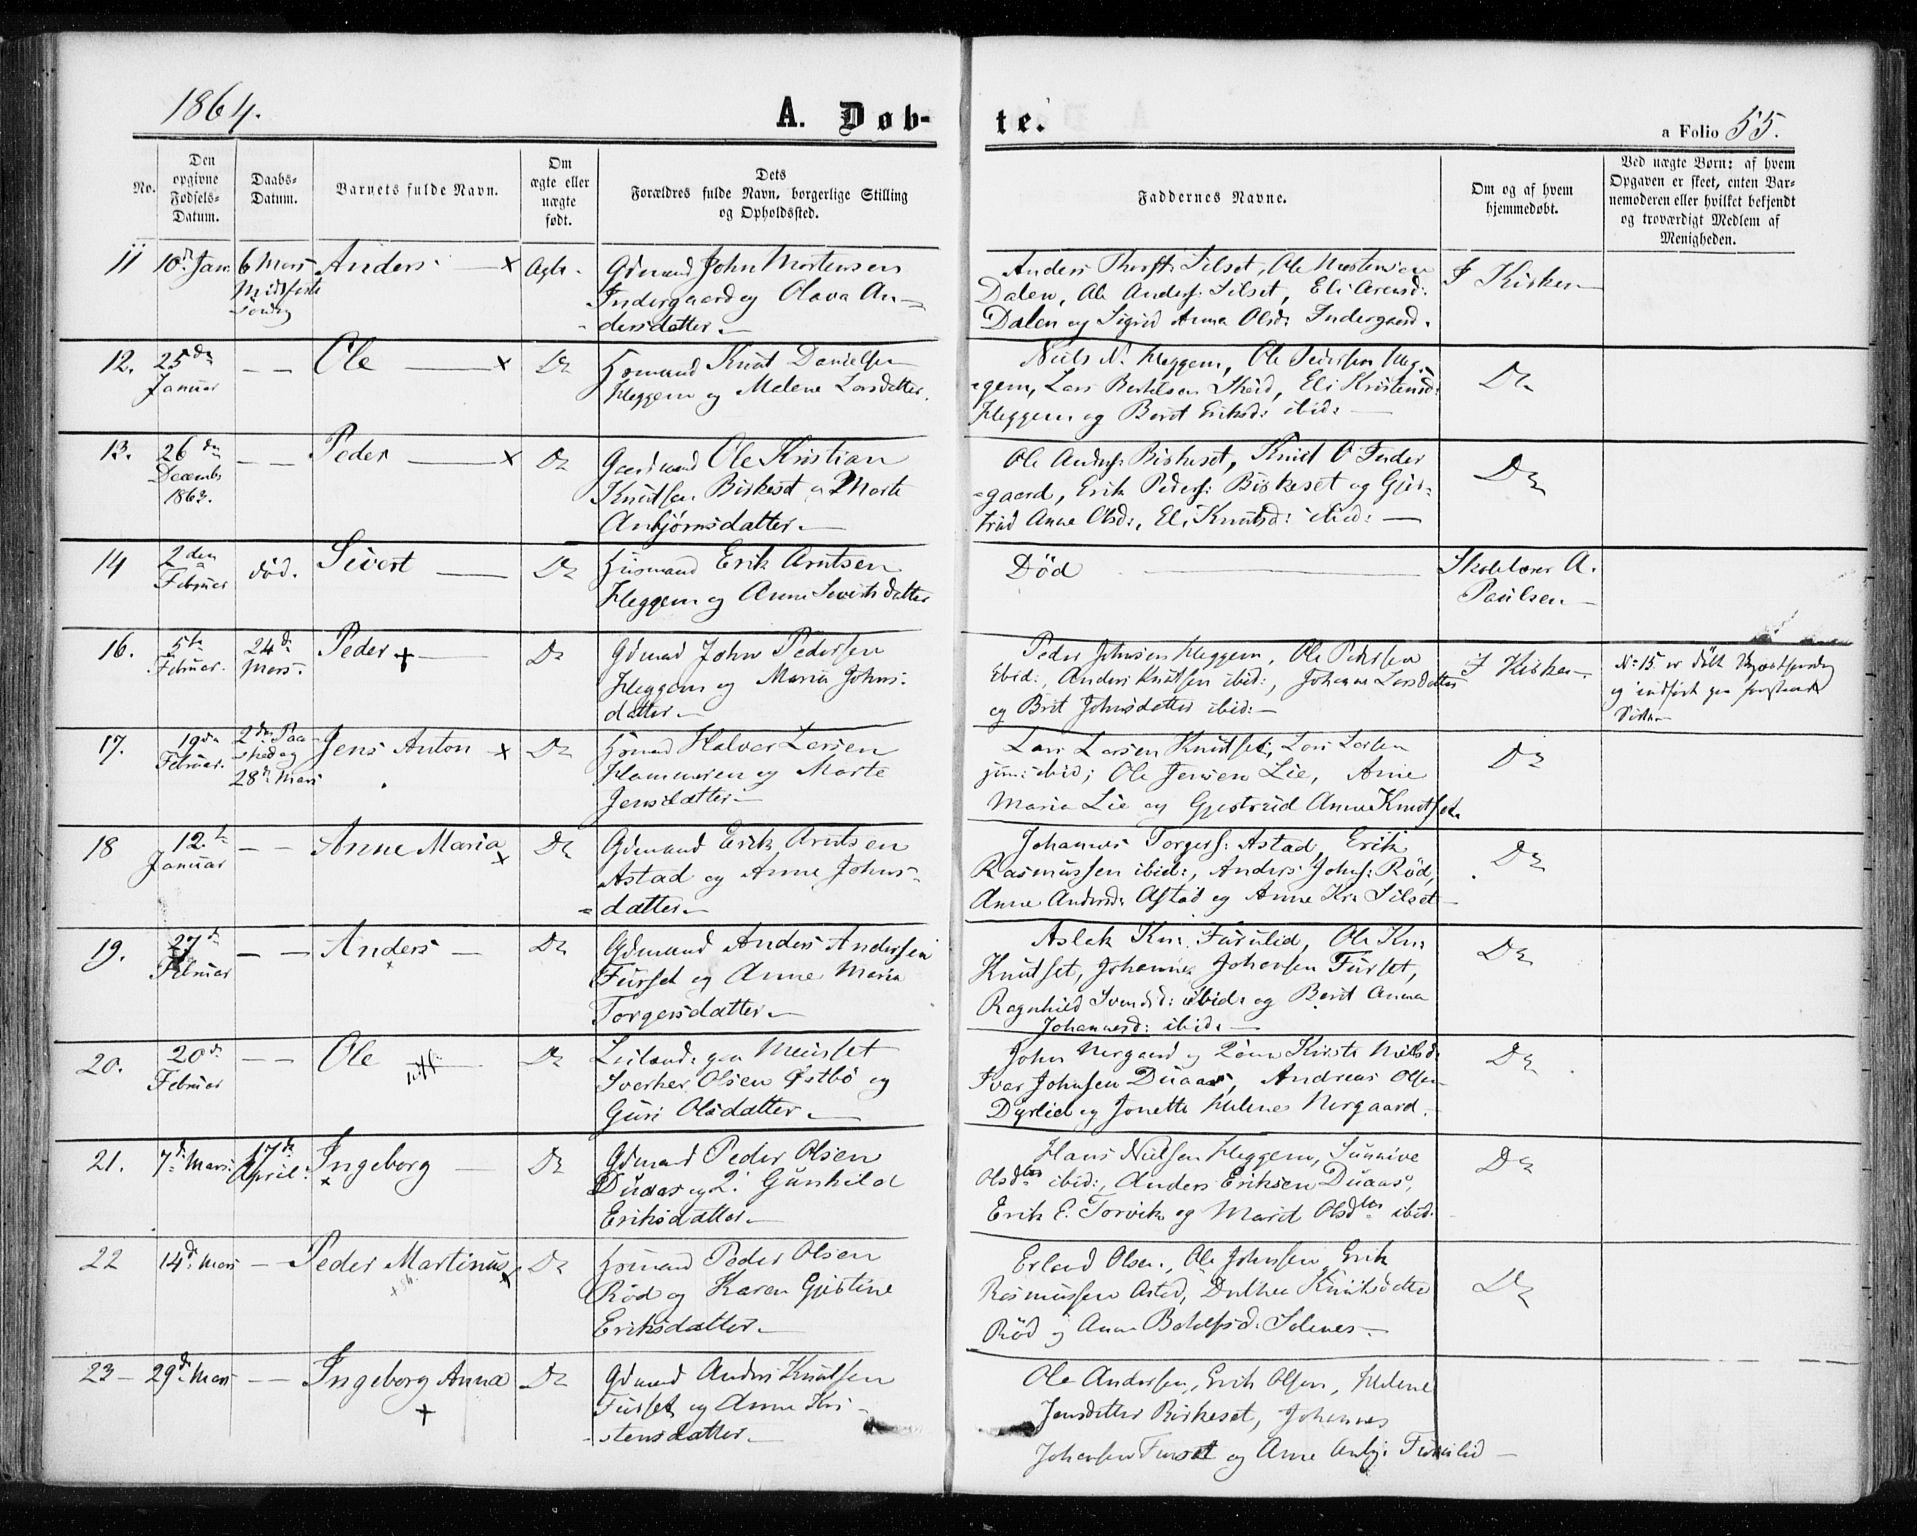 1864.
A. Døb-
te.
a Folio 55.
No.
Den opgivne Fødsels-Datum.
Daabs-Datum.
Barnets fulde Navn.
Om ægte eller uægte født.
Dets
Forældres fulde Navn, borgerlige Stilling
og Opholdssted.
Faddernes Navne.
Om og af hvem
hjemmedøbt.
Ved uægte Børn: af hvem
Opgaven er skeet, enten Bar-
nemoderen eller hvilket bekjendt
og troværdigt Medlem af
Menigheden.
11 10de Jan. 6 Mars Anders x Ægte. Gdmand John Mortensen
Midfaste Søndag Indergaard og Olava An-
dersdatter.
Anders Silset, Ole Mortensen
Dalen, Ole Anders: Silset, Eli Arensd:
Dalen og Sigrid Anna Olsd: Indergaard.
I Kirken
12. 25de Januar - - Ole x Do Husmand Knut Danielsen
Heggem og Malene Larsdatter.
Niels N. Heggem, Ole Pedersen Heg-
gem, Lars Bertelsen Skeid, Eli Kristensd:
Heggem og Berit Eriksd: ibid:
Do
13. 26de Decembr 1863. - - Peder x Do Gaardmand Ole Kristian
Knutsen Birkeset og Marte
Anbjørnsdatter.
Ole Anders: Birkeset, Knut O Inder
gaard, Erik Peders: Birkeset og Gjer-
trud Anne Olsd:, Eli Knutsd: ibid:
Do
14 2den Februar død. Sivert Do Husmand Erik Arntsen
Heggem og Anne Sivertsdatter
Død
Skolelærer A.
Paulsen
16. 5te Februar. 24de Mars. Peder + Do Gdmand John Pedersen
Heggem og Maria Johns-
datter.
Peder Johnsen Heggem, Ole Pedersen
ibid:, Anders Knutsen ibid:, Johanna Larsdatter
og Brit Johnsdatter ibid:
I Kirken
No 15 er døbt
og indført paa foregaaende
Side
17. 19de Februar. 2den Paa-skedag 28de Mars Jens Anton x Do Husmand Halvor Larsen
Hammeren og Marte
Jensdatter.
Lars Larsen Knutset, Lars Larsen
jun: ibid; Ole Jensen Lie, Anne
Maria Lie og Gjertrud Anne Knutset.
Do
18 12te Januar - - Anne Maria x Do Gdmand Erik Arntsen
Astad og Anne Johns-
datter.
Johannes Torgers: Astad, Erik
Rasmussen ibid:, Anders Johns: Rød,
Anne Andersd: Astad og Anne Silset
Do
19. 27de Februar - - Anders x Do Gdmand Anders Andersen
Furset og Anne Maria
Torgersdatter.
Aslak Furulid, Ole
Knutset, Johannes Johansen Furset,
Ragnhild Svendsd: ibid: og Berit Anna
Johannesd: ibid:
Do
20. 20de Februar - - Ole Do Meisset
Sverker Olsen Østbø og
Guri Olsdatter.
John Nergaard og Kone Kirsti Nielsd.
Ivar Johnsen Duaas, Andreas Olsen
Dyrlid og Jonetta Helenes Nergaard.
Do
21. 7de Mars. 17de April. Ingeborg x Do Gdmand Peder Olsen
Duaas og Gunhild
Eriksdatter.
Hans Nielsen Heggem, Sunnive
Olsdtr ibid:, Anders Eriksen Duaas,
Erik E. Torvik og Marit Olsdtr ibid.
Do
22 14de Mars - - Peder Martinus x Do Husmand Peder Olsen
Rød og Karen Gjertine
Eriksdatter.
Erland Olsen, Ole Johnsen, Erik
Rasmussen Astad, Dorthea Knutsdatter
Rød og Anne Solenes.
Do
23 29de Mars - - Ingeborg Anna + Do Gdmand Anders Knutsen
Furset og Anne Kri-
stensdatter.
Ole Andersen, Erik Olsen, Helene
Jensdatter Birkeset, Johannes
Johansen Furset og Anne Anbj: Furulid